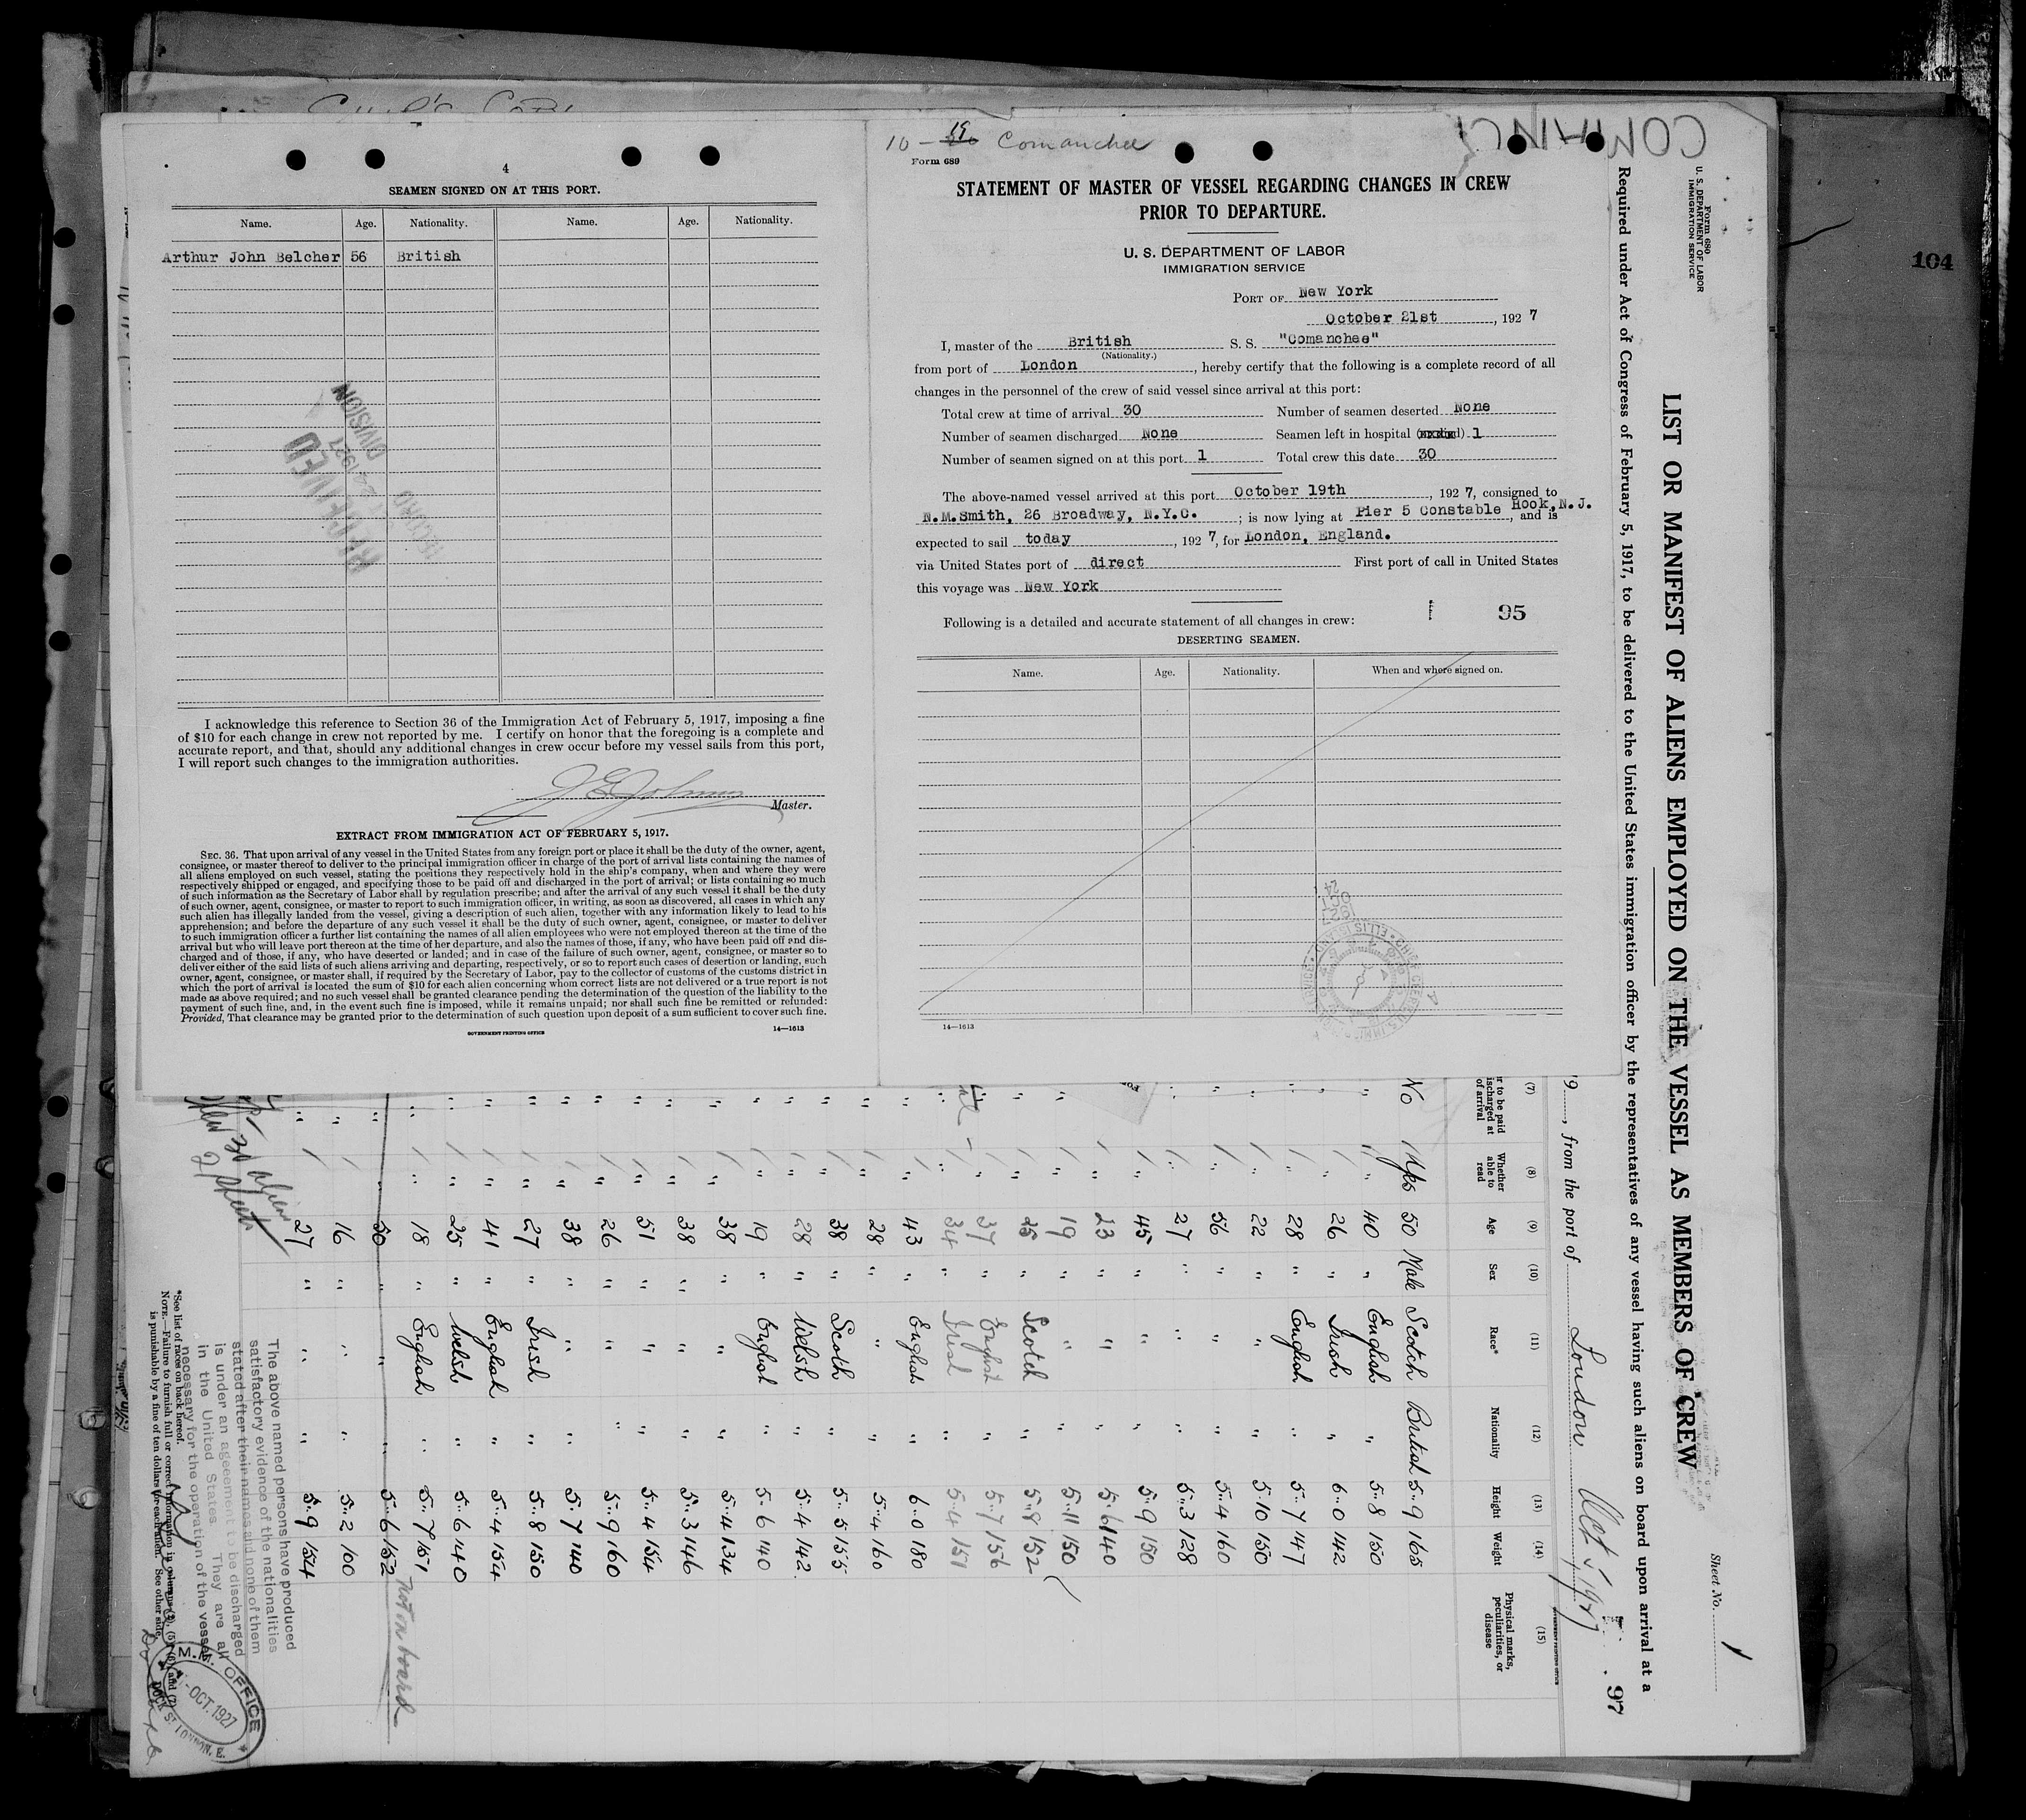 4
SEAMEN SIGNED ON AT THIS PORT.
Name. Age. Nationality. Name. Age. Nationality.
Arthur John Belcher 56 British
RECEIVED
24 1927
RECORD DIVISION
I acknowledge this reference to Section 36 of the Immigration Act of February 5, 1917, imposing a fine
of $10 for each change in crew not reported by me. I certify on honor that the foregoing is a complete and
accurate report, and that, should any additional changes in crew occur before my vessel sails from this port,
I will report such changes to the immigration authorities.
Master.
EXTRACT FROM IMMIGRATION ACT OF FEBRUARY 5, 1917.
SEC. 36. That upon arrival of any vessel in the United States from any foreign port or place it shall be the duty of the owner, agent,
consignee, or master thereof to deliver to the principal immigration officer in charge of the port of arrival lists containing the names of
all aliens employed on such vessel, stating the positions they respectively hold in the ship's company, when and where they were
respectively shipped or engaged, and specifying those to be paid off and discharged in the port of arrival; or lists containing so much
of such information as the Secretary of Labor shall by regulation prescribe; and after the arrival of any such vessel it shall be the duty
of such owner, agent, consignee, or master to report to such immigration officer, in writing, as soon as discovered, all cases in which any
such alien has illegally landed from the vessel, giving a description of such alien, together with any information likely to lead to his
apprehension; and before the departure of any such vessel it shall be the duty of such owner, agent, consignee, or master to deliver
to such immigration officer a further list containing the names of all alien employees who were not employed thereon at the time of the
arrival but who will leave port thereon at the time of her departure, and also the names of those, if any, who have been paid off and dis-
charged and of those, if any, who have deserted or landed; and in case of the failure of such owner, agent, consignee, or master so to
deliver either of the said lists of such aliens arriving and departing, respectively, or so to report such cases of desertion or landing, such
owner, agent, consignee, or master shall, if required by the Secretary of Labor, pay to the collector of customs of the customs district in
which the port of arrival is located the sum of $10 for each alien concerning whom correct lists are not delivered or a true report is not
made as above required; and no such vessel shall be granted clearance pending the determination of the question of the liability to the
payment of such fine, and, in the event such fine is imposed, while it remains unpaid; nor shall such fine be remitted or refunded:
Provided, That clearance may be granted prior to the determination of such question upon deposit of a sum sufficient to cover such fine.
GOVERNMENT PRINTING OFFICE 14—1613
10 - 19 Comanchee
Form 689
STATEMENT OF MASTER OF VESSEL REGARDING CHANGES IN CREW
PRIOR TO DEPARTURE.
U. S. DEPARTMENT OF LABOR
IMMIGRATION SERVICE
PORT OF New York
October 21st, 1927
I, master of the British S. S. "Comanchee"
(Nationality.)
from port of London, hereby certify that the following is a complete record of all
changes in the personnel of the crew of said vessel since arrival at this port:
Total crew at time of arrival 30 Number of seamen deserted None
Number of seamen discharged None Seamen left in hospital 1
Number of seamen signed on at this port 1 Total crew this date 30
The above-named vessel arrived at this port October 19th, 1927, consigned to
N.M.Smith, 26 Broadway, N.Y.C. ; is now lying at Pier 5 Constable Hook, N.J., and is
expected to sail today, 1927, for London, England.
via United States port of direct First port of call in United States
this voyage was New York
95
Following is a detailed and accurate statement of all changes in crew:
DESERTING SEAMEN.
Name. Age. Nationality. When and where signed on.
14—1613
104
COMANC
Form 680
U. S. DEPARTMENT OF LABOR
IMMIGRATION SERVICE
Sheet No. 1
LIST OR MANIFEST OF ALIENS EMPLOYED ON THE VESSEL AS MEMBERS OF CREW
Required under Act of Congress of February 5, 1917, to be delivered to the United States immigration officer by the representatives of any vessel having such aliens on board upon arrival at a
97
19, from the port of London Oct 5 1927
(7) (8) (9) (10) (11) (12) (13) (14) (15)
r to be paid ischarged at of arrival Whether able to read Age Sex Race* Nationality Height Weight Physical marks, peculiarities, or disease
No Yes 50 Male Scotch British 5-9 165
" " 40 " English " 5-8 150
" " 26 " Irish " 6-0 142
" " 28 " English " 5-7 147
" " 22 " " " 5-10 150
" " 56 " " " 5-4 160
" " 27 " " " 5-3 128
" " 45 " " " 5-9 150
" " 23 " " " 5-6 140
" " 19 " " " 5-11 150
" " 25 " Scotch " 5-8 152
" " 37 " English " 5-7 156
" " 34 " Irish " 5-4 151
" " 43 " English " 6-0 180
" " 28 " " " 5-4 160
" " 38 " Scoth " 5-5 155
" " 28 " Welsh " 5-4 142
" " 19 " English " 5-6 140
" " 38 " " " 5-4 134
" " 38 " " " 5-3 146
" " 51 " " " 5-4 154
" " 26 " " " 5-9 160
" " 38 " " " 5-7 140
" " 27 " Irish " 5-8 150
" " 41 " English " 5-4 154
" " 25 " Welsh " 5-6 140
" " 18 " English " 5-7 151
" " 50 " " " 5-6 152 not on board
" " 16 " " " 5-2 100
" " 27 " " " 5-9 154
30 alien
2 sheets
The above named persons have produced
satisfactory evidence of the nationalities
stated after their names and none of them
is under an agreement to be discharged
in the United States. They are all
necessary for the operation of the vessel.
*See list of races on back hereof.
NOTE.—Failure to furnish full or correct information in columns (2), (5), (6), and (7)
is punishable by a fine of ten dollars for each alien. See other side.
M.M. OFFICE
OCT. 1927
DOCK ST. LONDON. E.